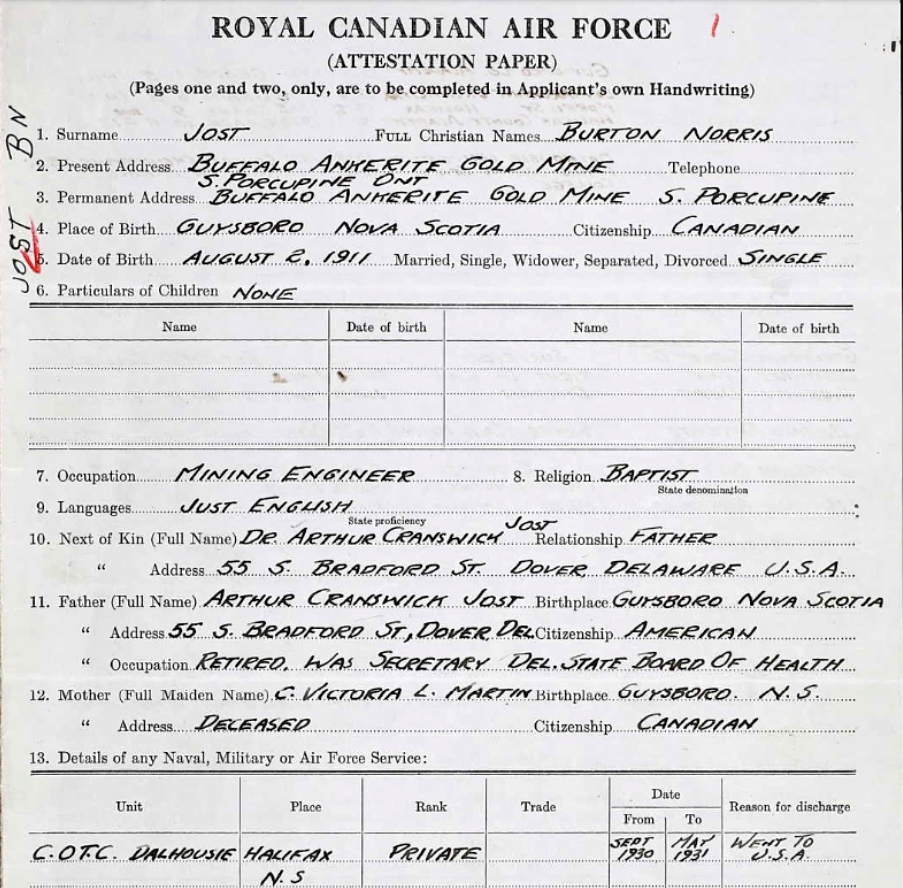 ROYAL CANADIAN AIR FORCE 1
(ATTESTATION PAPER)
(Pages one and two, only, are to be completed in Applicant's own Handwriting)
JOST BN
1. Surname JOST FULL Christian Names BURTON NORRIS
2. Present Address BUFFALO ANKERITE GOLD MINE Telephone
S. PORCUPINE ONT
3. Permanent Address BUFFALO ANKERITE GOLD MINE S. PORCUPINE
4. Place of Birth GUYSBORO NOVA SCOTIA Citizenship CANADIAN
5. Date of Birth AUGUST 2, 1911 Married, Single, Widower, Separated, Divorced SINGLE
6. Particulars of Children NONE
Name Date of birth Name Date of birth
7. Occupation MINING ENGINEER 8. Religion BAPTIST
State denomination
9. Languages JUST ENGLISH
State proficiency
10. Next of Kin (Full Name) DR. ARTHUR CRANSWICK JOST Relationship FATHER
" Address 55 S. BRADFORD ST. DOVER, DELAWARE U.S.A.
11. Father (Full Name) ARTHUR CRANSWICK JOST Birthplace GUYSBORO NOVA SCOTIA
" Address 55 S. BRADFORD ST, DOVER, DEL Citizenship AMERICAN
" Occupation RETIRED. WAS SECRETARY DEL. STATE BOARD OF HEALTH
12. Mother (Full Maiden Name) C. VICTORIA L. MARTIN Birthplace GUYSBORO. N.S.
" Address DECEASED Citizenship CANADIAN
13. Details of any Naval, Military or Air Force Service:
Unit Place Rank Trade Date Reason for discharge
From To
C.O.T.C. DALHOUSIE HALIFAX N.S PRIVATE SEPT 1930 MAY 1931 WENT TO U.S.A.